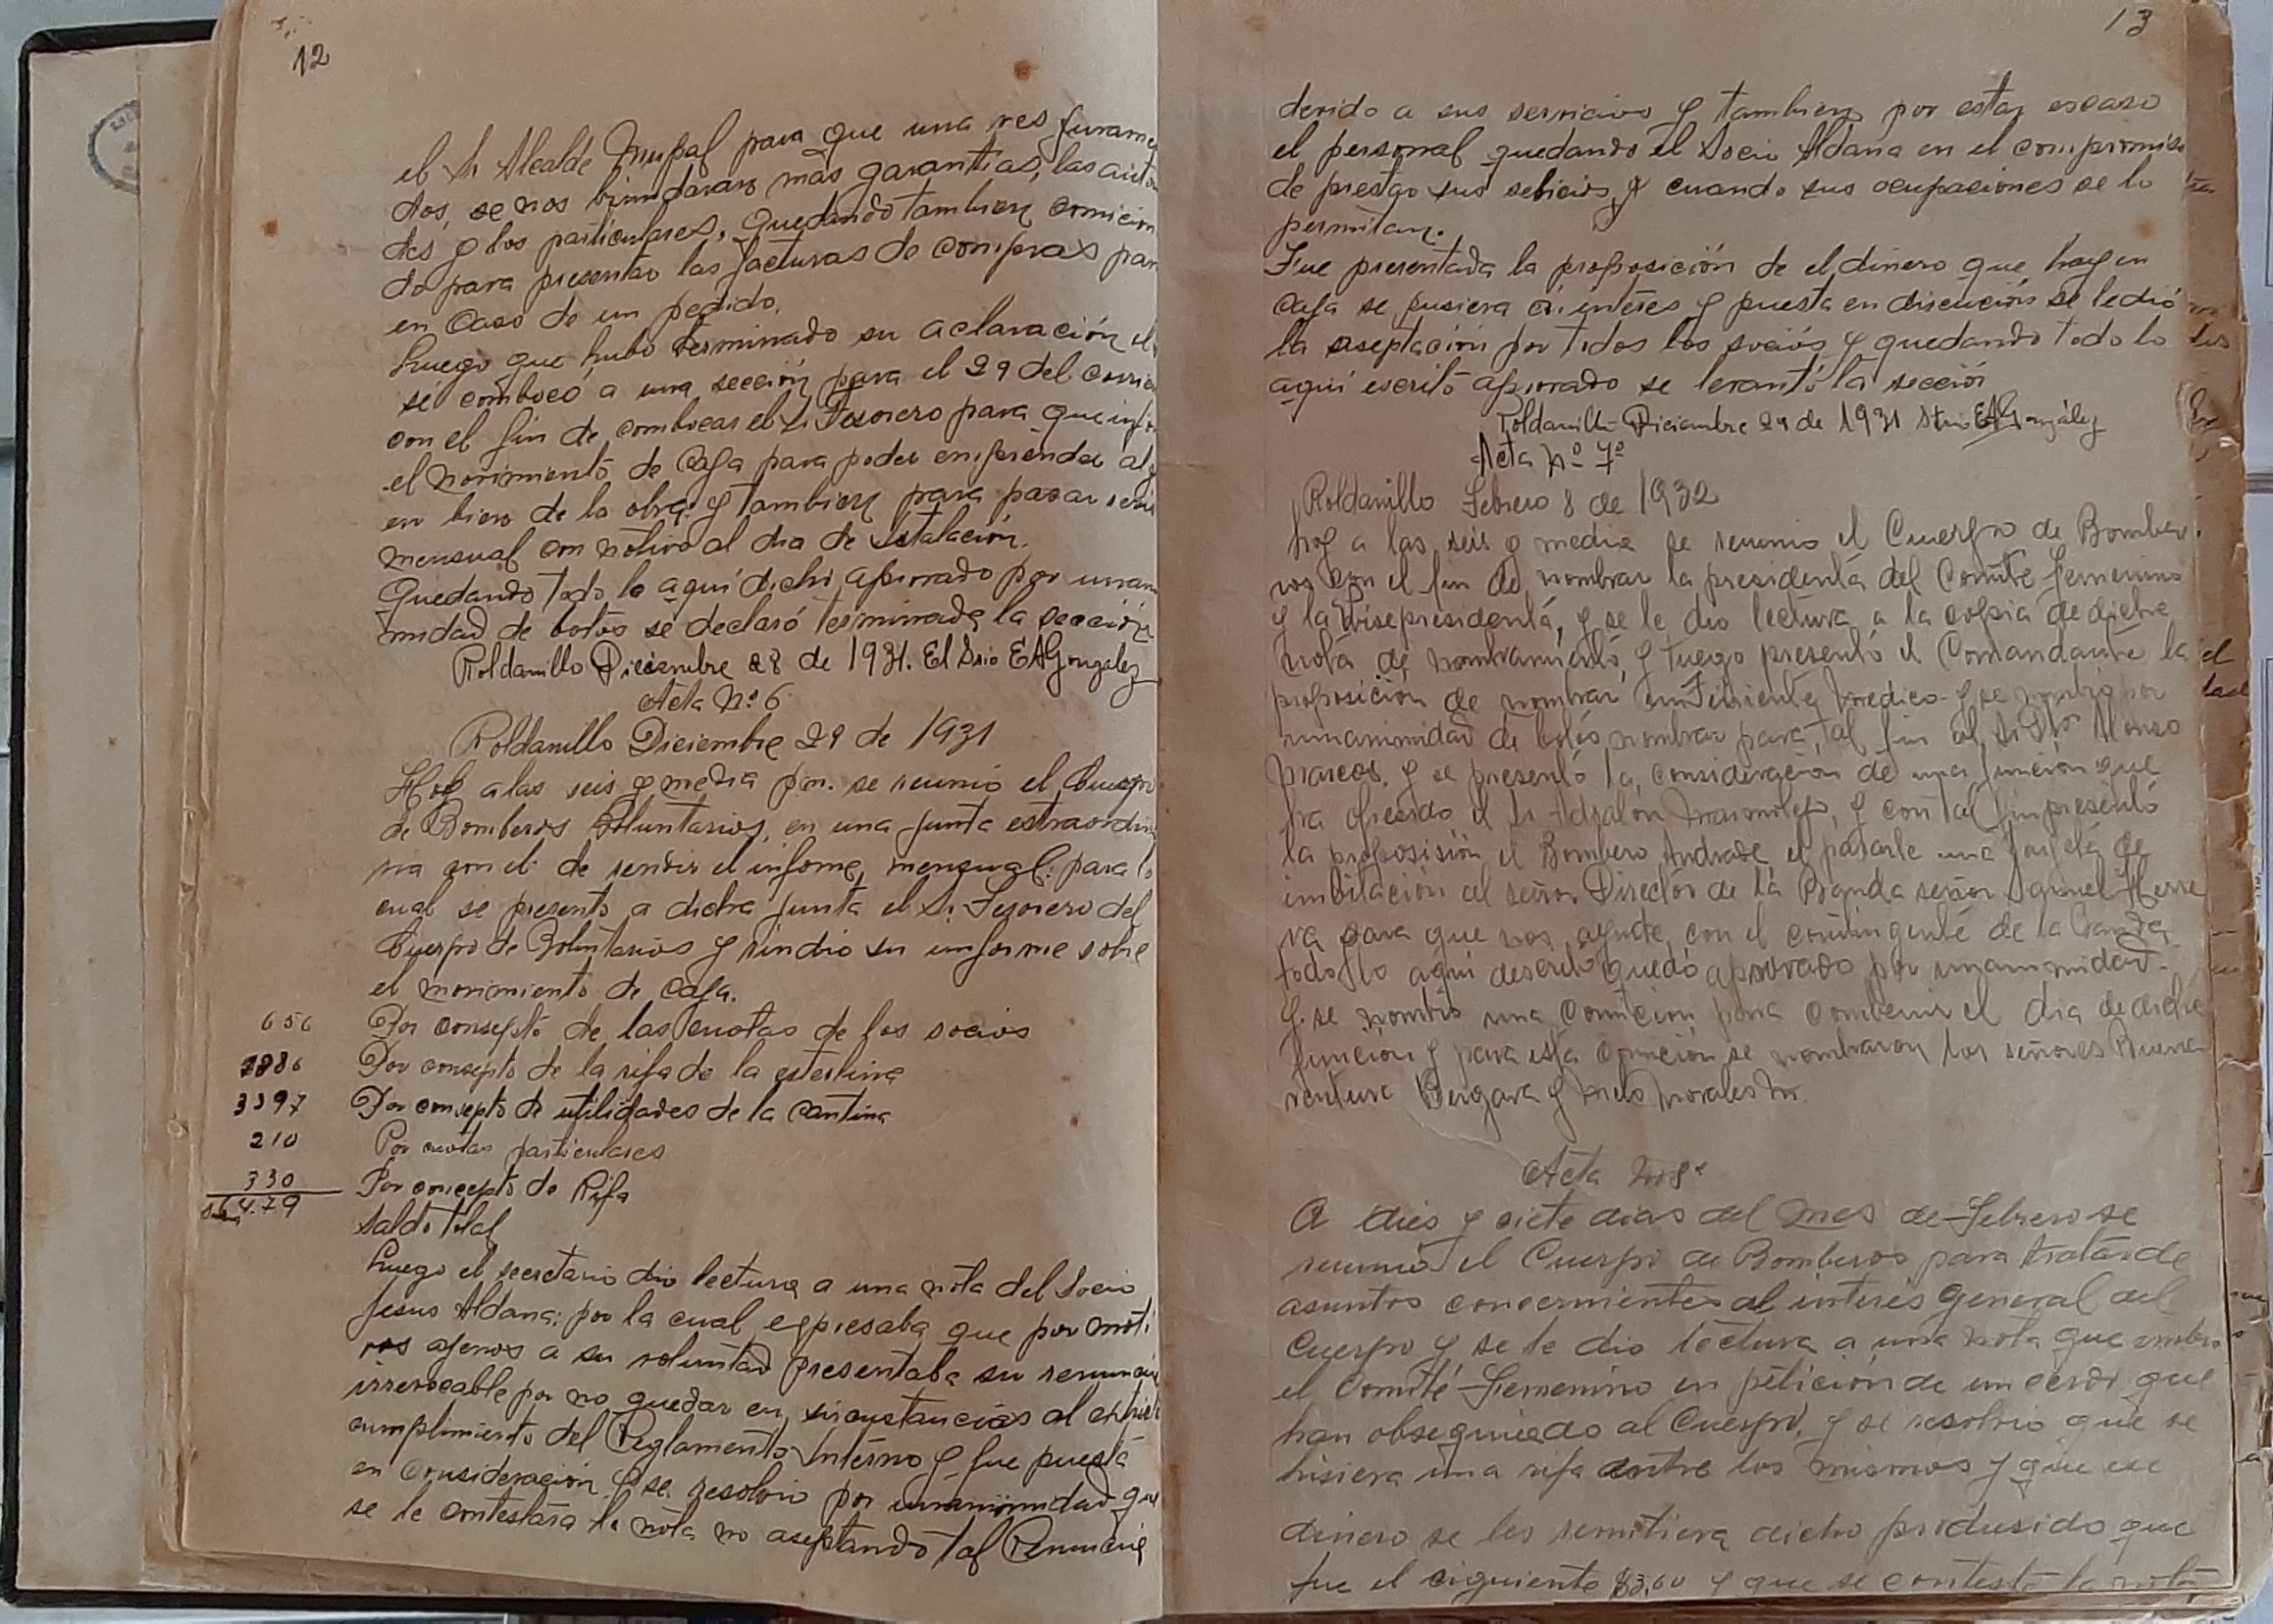 12
el Sr Alcalde Mupal para que una ves jurame
dos, se nos brindaran más garantias, las auto
des y los particulares, Quedando tambien comicion
do para presentar las facturas de compras par
en caso de un pedido.
Luego que hubo terminado su aclaración el
se combocó a una sección para el 29 del corrie
con el fin de combocar el Sr Tesorero para que info
el movimiento de Caja para poder emprender al
en bien de la obra y tambien para pasar
mensual con motivo al dia de Istalación.
Quedando todo lo aqui dicho aprovado por unani
midad de botos se declaró terminada la sección
Roldanillo Diciembre 28 de 1931. El Srio EAGonzalez
Acta No. 6
Roldanillo Diciembre 29 de 1931
Hoy a las seis y media pm. se reunió el Cuerpo
de Bomberos Boluntarios, en una junta estraordin
ria con el de rendir el informe, mensual. para lo
cual se presento a dicha junta el Sr. Tesorero del
Cuerpo de Boluntarios y rindio su informe sobre
el movimiento de caja.
656 Por consepto de las cuotas de los socios
1886 Por consepto de la rifa de la esterlina
3397 Por consepto de utilidades de la Cantina
210 Por cuotas particulares
330 Por concepto de Rifa
Suma 64.79 Saldo total
Luego el secretario dio lectura a una nota del Socio
Jesus Aldana; por la cual expresaba que por moti
vos ajenos a su voluntad presentaba su renuncia
irrevocable por no quedar en sircustancias al
cumplimiento del Reglamento Interno y fue puesta
en Consideración y se resolvio por unanimidad que
se le contestara la nota no aseptando tal Renuncia
13
devido a sus servicios y tambien por estar escaso
el personal quedando el Socio Aldana en el compromiso
de prestar sus sebicios y cuando sus ocupaciones se lo
permitan.
Fue presentada la proposición de el dinero que hay en
caja se pusiera a interes y puesta en discución se le dió
la aseptación por todos los socios y quedando todo lo
aqui escrito aprovado se levantó la sección
Roldanillo Diciembre 29 de 1931 Srio EAGonzález
Acta No 7o
Roldanillo Febrero 8 de 1932
hoy a las seis y media se reunio el Cuerpo de Bombe
ros con el fin de nombrar la presidenta del Comite femenino
y la Visepresidentá, y se le dio lectura a la copia de dicha
nota de nombramiento, y luego presentó el Comandante la
proposición de nombrar un Teniente medico y se nombró por
unanimidad de botos nombrar para tal fin al Sr Dr Alonso
Marcos. y se presentó la consideración de una función que
ha ofresido el Sr Adsalon Marmolejo, y con tal fin presentó
la proposisión el Bombero Andrade el pasarle una tarjeta de
imbitación al señor Director de la Banda señor Samuel Herre
ra para que nos ayude con el contingente de la Banda
todo lo aqui descrito quedó aprovado por unanimidad.
y se nombró una Comicion para combenir el dia de dicha
función y para esta comición se nombraron los señores Buena
ventura Bergara y Melo Morales M.
Acta No 8a
A dies y siete dias del Mes de Febrero se
reunió el Cuerpo de Bomberos para tratar de
asuntos concernientes al interes General del
Cuerpo y se le dio lectura a una nota que embio
el Comité Femenino en petición de un cerdo que
han obsequiado al Cuerpo, y se resolvio que se
hisiera una rifa entre los mismos y que ese
dinero se les remitiera dicho produsido que
fue el siguiente $3.60 y que se contestó la nota